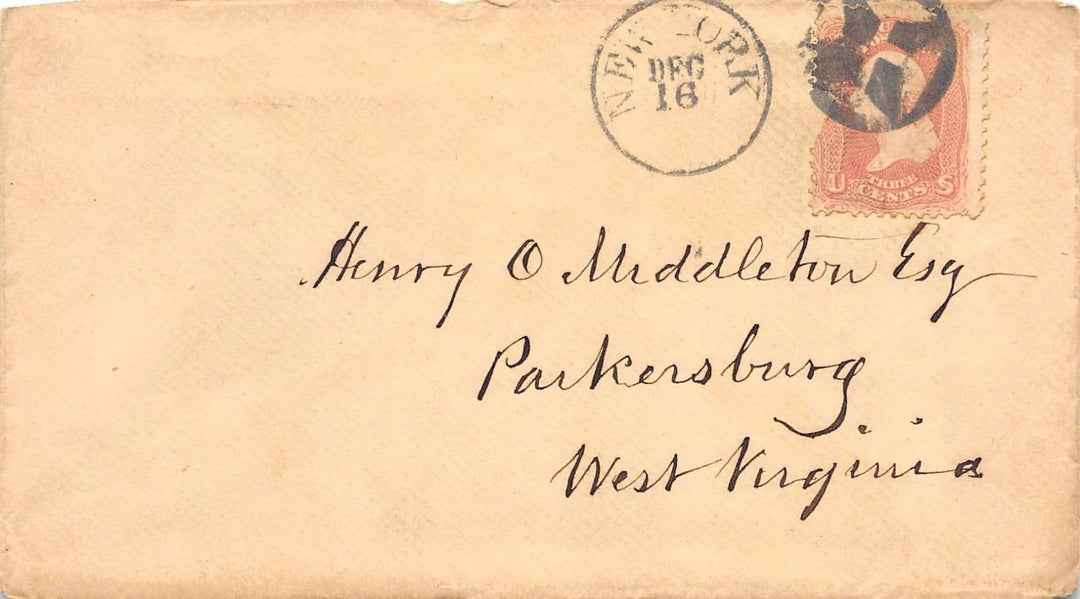 NEW YORK
DEC
16
U THREE CENTS S
Henry O Middleton Esq
Parkersburg
West Virginia